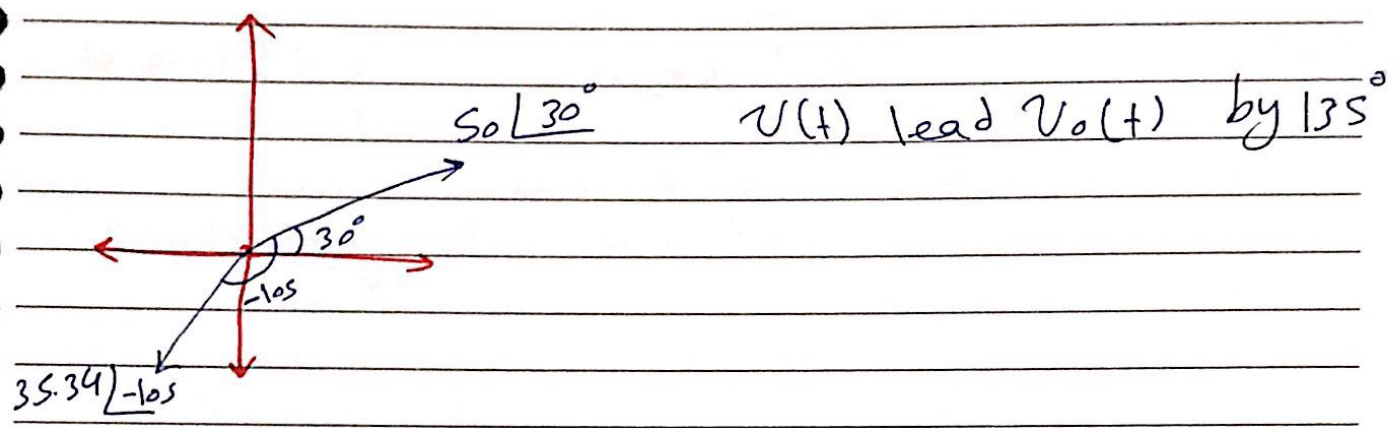 50∠30° V(t) lead Vo(t) by 135°
30°
-105
35.34∠-105